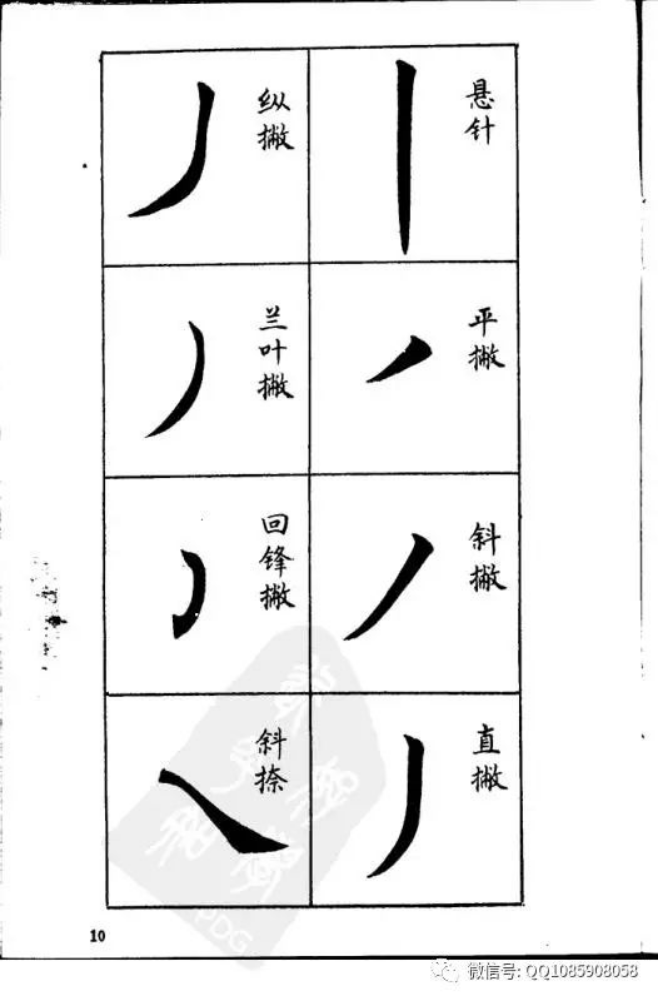 悬针
平撇
斜撇
直撇
纵撇
兰叶撇
回锋撇
斜捺
10
PDG
微信号: QQ1085908058